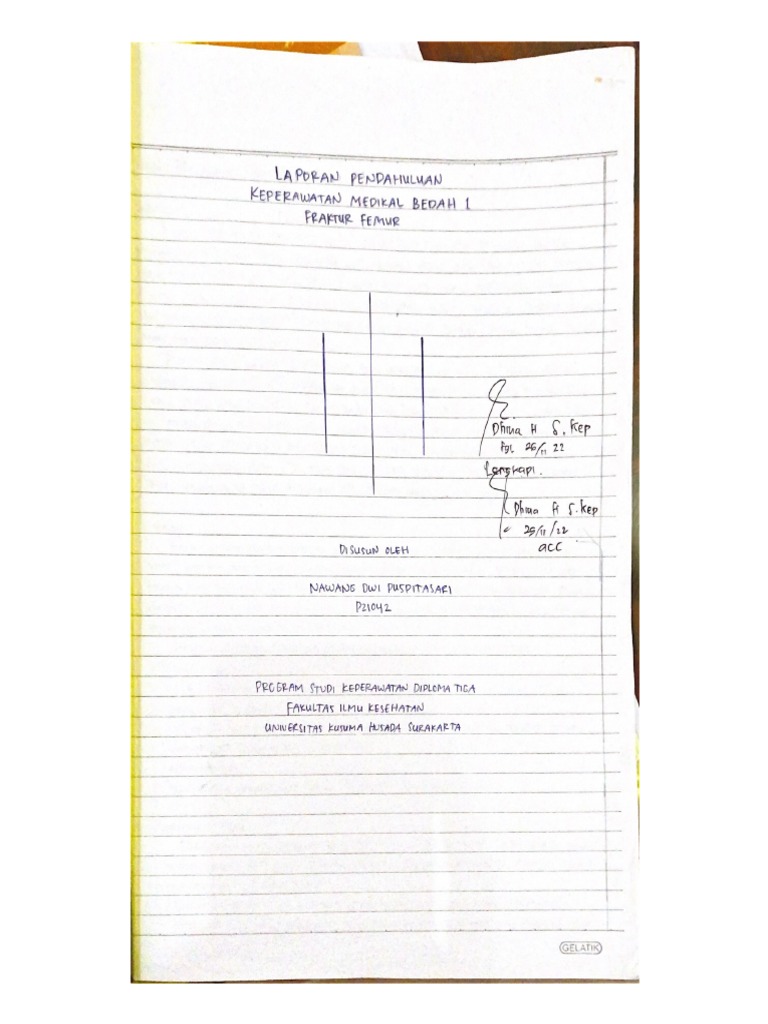 LAPORAN PENDAHULUAN
KEPERAWATAN MEDIKAL BEDAH 1
FRAKTUR FEMUR
Dhina H S. Kep
25/11 22
Lengkapi.
Dhina H S. Kep
25/11/22
acc
DISUSUN OLEH
NAWANG DWI PUSPITASARI
P21042
PROGRAM STUDI KEPERAWATAN DIPLOMA TIGA
FAKULTAS ILMU KESEHATAN
UNIVERSITAS KUSUMA HUSADA SURAKARTA
GELATIK